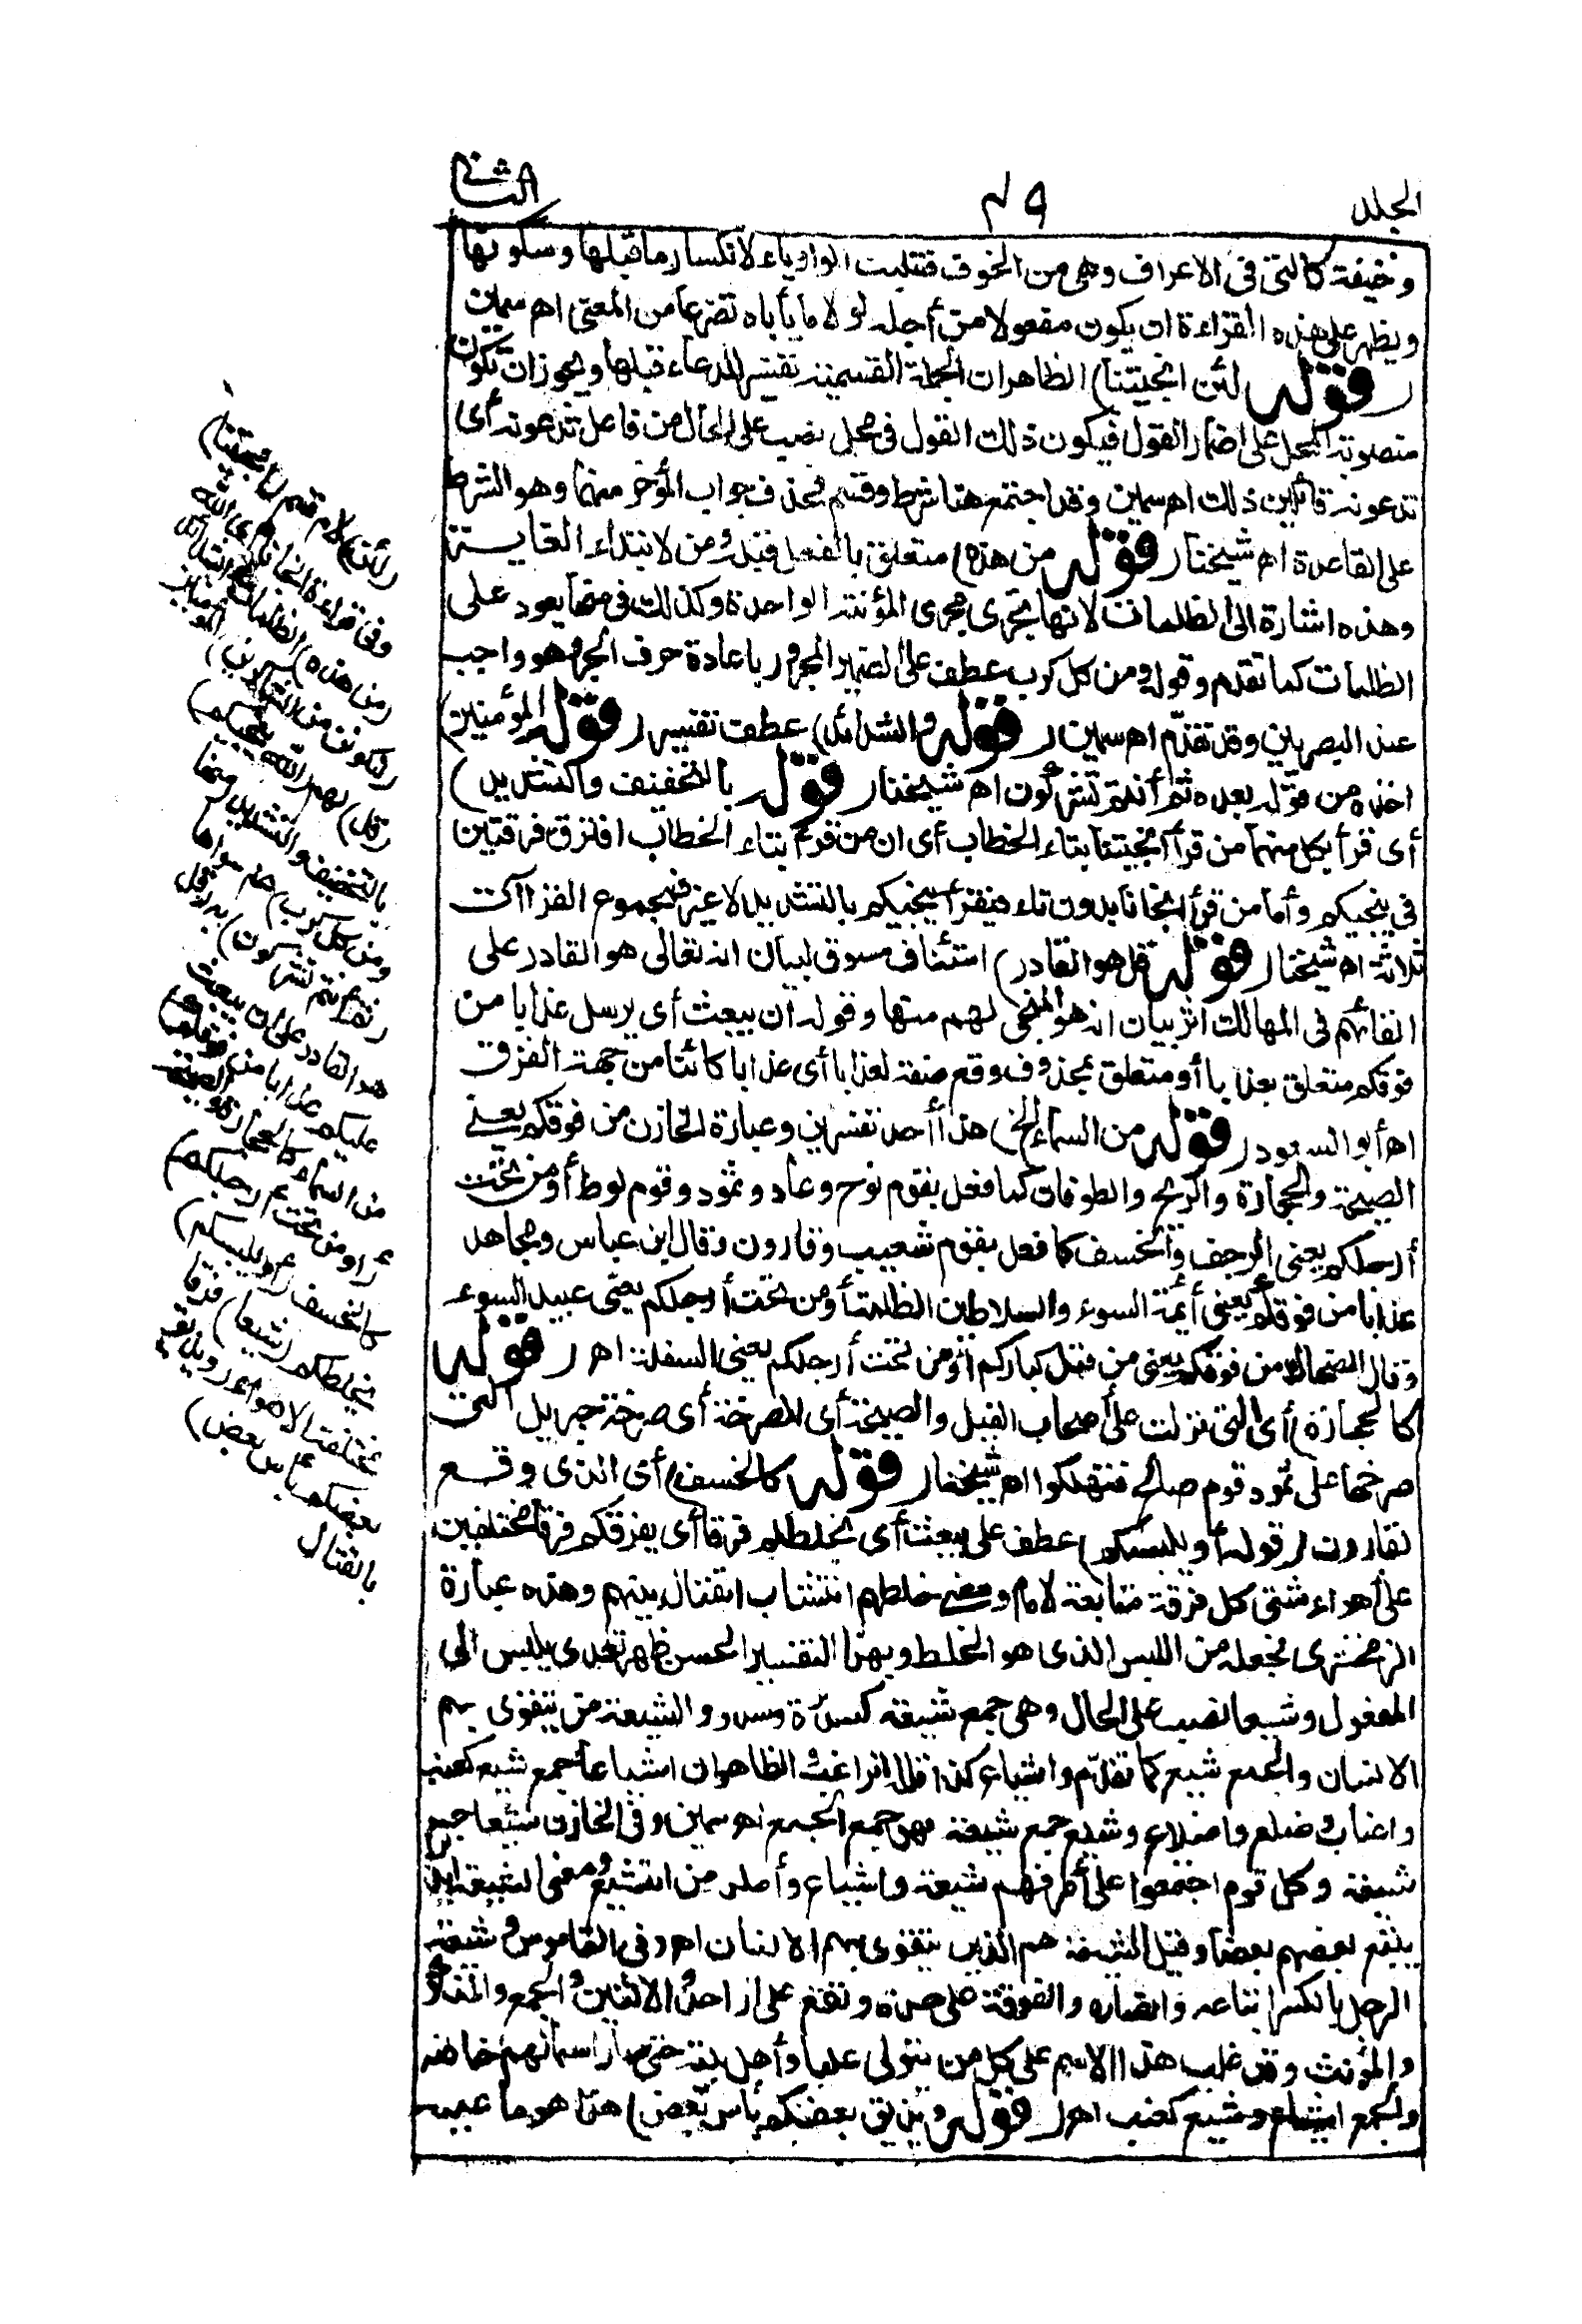 الجلد
٤٩
الثاني
وخيفة كالتي في الاعراف وهي من الخوف فقلبت الواو ياء لانكسار ما قبلها وسكونها
ويظهر على هذه القراءة ان يكون مفعولا من أجله لولا ما يأباه تضرعا من المعنى اهـ سمين
(قوله لئن انجيتنا) الظاهر ان الجملة القسمية تفسير للدعاء قبلها ويجوز ان تكون
منصوبة المحل على اضمار القول فيكون ذلك القول في محل نصب على الحال من فاعل تدعونه أى
تدعونه قائلين ذلك اهـ سمين وقد اجتمع هنا شرط وقسم فحذف جواب المؤخر منهما وهو الشرط
على القاعدة اهـ شيخنا (قوله من هذه) متعلق بالفعل قبله ومن لابتداء الغاية
وهذه اشارة الى الظلمات لانها تجرى مجرى المؤنثة الواحدة وكذلك في منها يعود على
الظلمات كما تقدم وقوله ومن كل كرب عطف على الضمير المجرور باعادة حرف الجر وهو واجب
عند البصريين وقد تقدم اهـ سمين (قوله والشدائد) عطف تفسير (قوله المؤمنين)
اخذه من قوله بعده ثم أنتم تشركون اهـ شيخنا (قوله بالتخفيف والتشديد)
أى قرأ بكل منهما من قرأ أنجيتنا بتاء الخطاب أى ان من قرأ بتاء الخطاب افترق فرقتين
في ينجيكم وأما من قرأ انجانا بدون تاء فيقرأ ينجيكم بالتشديد لا غير فمجموع القراآت
ثلاثة اهـ شيخنا (قوله قل هو القادر) استئناف مسوق لبيان انه تعالى هو القادر على
القائهم في المهالك اثر بيان انه هو المنجي لهم منها وقوله أن يبعث أى يرسل عذابا من
فوقكم متعلق بعذابا أو متعلق بمحذوف وقع صفة لعذابا أى عذابا كائنا من جهة الفوق
اهـ أبو السعود (قوله من السماء الخ) هذا أحد تفسيرين وعبارة الخازن من فوقكم يعنى
الصيحة والحجارة والريح والطوفان كما فعل بقوم نوح وعاد وثمود وقوم لوط أو من تحت
أرجلكم يعنى الرجف والخسف كما فعل بقوم شعيب وقارون وقال ابن عباس ومجاهد
عذابا من فوقكم يعنى أئمة السوء والسلاطين الظلمة أو من تحت أرجلكم يعنى عبيد السوء
وقال الضحاك من فوقكم يعنى من قبل كباركم أو من تحت أرجلكم يعنى السفلة اهـ (قوله
كالحجارة) أى التي نزلت على أصحاب الفيل والصيحة أى الصرخة أى صرخة جبريل التي
صرخها على ثمود قوم صالح فتهلكوا اهـ شيخنا (قوله كالخسف) أى الذى وقع
لقارون (قوله أو يلبسكم) عطف على يبعث أى يخلطكم فرقا أى يفرقكم فرقا مختلفين
على أهواء شتى كل فرقة متابعة لامام ومعنى خلطهم انتشاب القتال بينهم وهذه عبارة
الزمخشرى فجعله من اللبس الذى هو الخلط وبهذا التفسير الحسن ظهر تعدى يلبس الى
المفعول وشيعا نصب على الحال وهي جمع شيعة كسدرة وسدر والشيعة من يتقوى بهم
الانسان والجمع شيع كما تقدم واشياع كذا قال الراغب والظاهر ان اشياعا جمع شيع كعنب
واعناب وضلع واضلاع وشيع جمع شيعة فهو جمع الجمع اهـ سمين وفي الخازن شيعا جمع
شيعة وكل قوم اجتمعوا على أمر فهم شيعة واشياع وأصله من التشيع ومعنى الشيعة الذين
يتبع بعضهم بعضا وقيل الشيعة هم الذين يتقوى بهم الانسان اهـ وفي القاموس وشيعة
الرجل بالكسر اتباعه وانصاره والفرقة على حدة وتقع على الواحد والاثنين والجمع والمذكر
والمؤنث وقد غلب هذا الاسم على كل من يتولى عليا وأهل بيته حتى صار اسما لهم خاصة
والجمع اشياع وشيع كعنب اهـ (قوله ويذيق بعضكم بأس بعض) هذا هو ما عليه
(لئن) لام قسم (أنجيتنا)
وفي قراءة انجانا أى الله
(من هذه) الظلمات والشدائد
(لنكونن من الشاكرين) المؤمنين
(قل) لهم (الله ينجيكم)
بالتخفيف والتشديد (منها
ومن كل كرب) غم سواها
(ثم أنتم تشركون) به (قل
هو القادر على ان يبعث
عليكم عذابا من فوقكم)
من السماء كالحجارة والصيحة
(أو من تحت أرجلكم)
كالخسف (أو يلبسكم)
يخلطكم (شيعا) فرقا
مختلفة الاهواء (ويذيق
بعضكم بأس بعض)
بالقتال